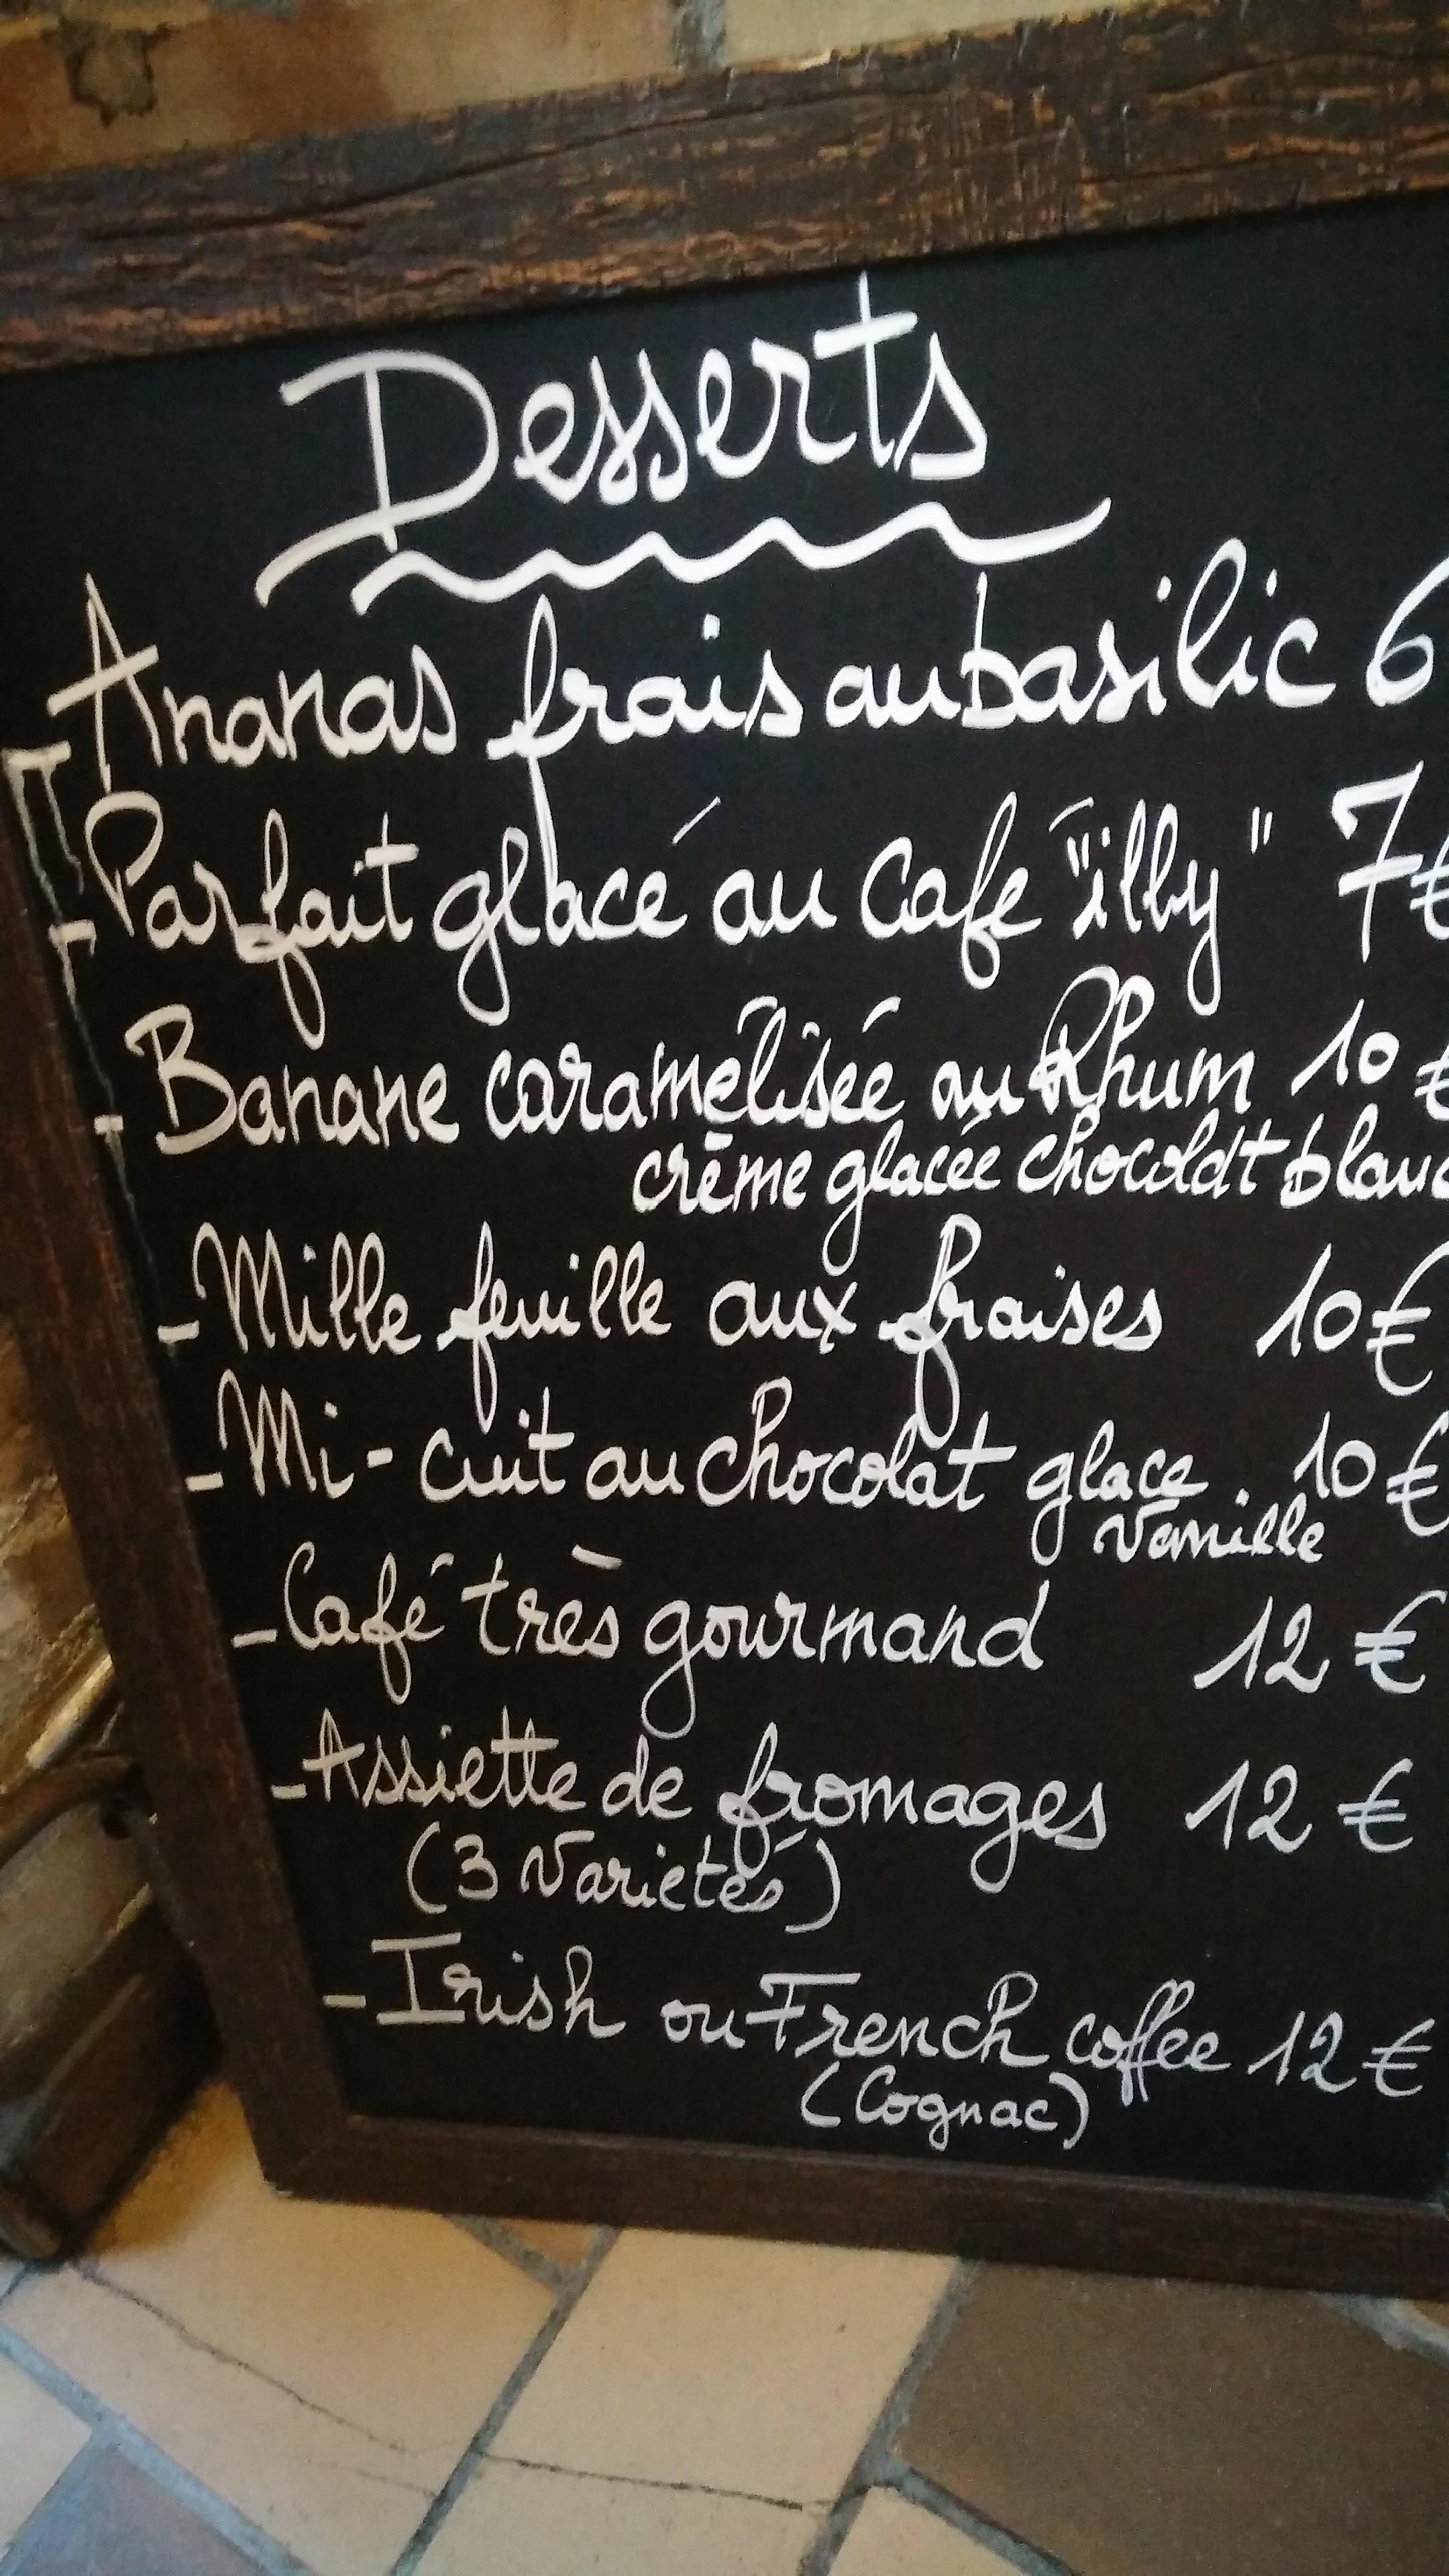 Desserts
- Ananas frais au basilic 6
- Parfait glacé au Café "illy" 7€
- Banane caramélisée au Rhum 10 €
crème glacée chocolat blanc
- Mille feuille aux fraises 10€
- Mi-cuit au chocolat glace 10€
vanille
- Café très gourmand 12 €
- Assiette de fromages 12 €
(3 variétés)
- Irish ou French coffee 12 €
(Cognac)